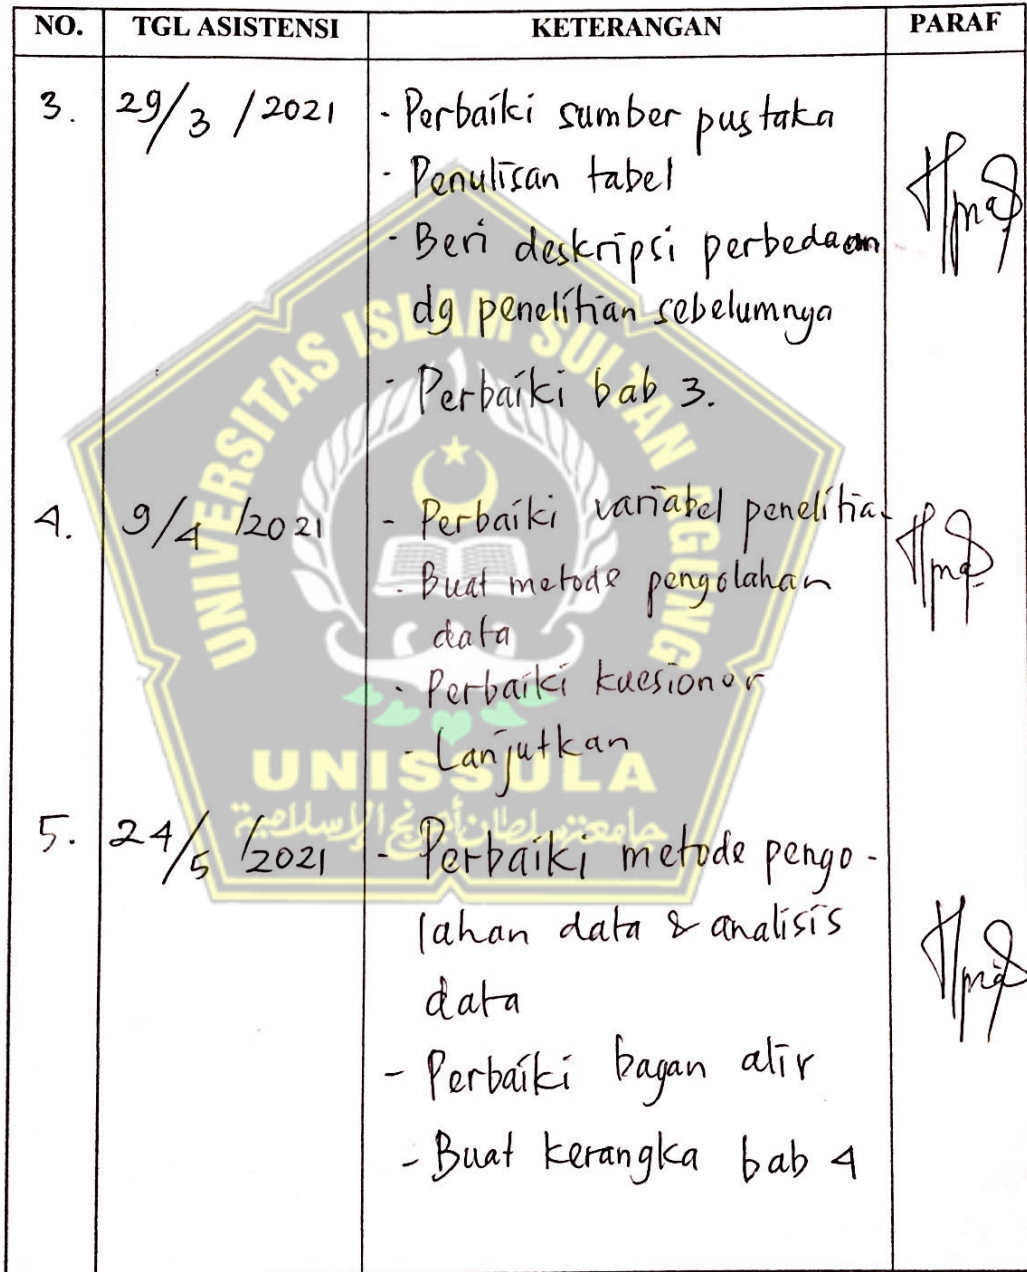 NO. TGL ASISTENSI KETERANGAN PARAF
3. 29/3/2021 - Perbaiki sumber pustaka
- Penulisan tabel
- Beri deskripsi perbedaan
dg penelitian sebelumnya
- Perbaiki bab 3.
4. 9/4/2021 - Perbaiki variabel penelitia
- Buat metode pengolahan
data
- Perbaiki kuesioner
- Lanjutkan
5. 24/5/2021 - Perbaiki metode pengo-
lahan data & analisis
data
- Perbaiki bagan alir
- Buat kerangka bab 4
UNIVERSITAS ISLAM SULTAN AGUNG
UNISSULA
جامعة سلطان أجونج الإسلامية